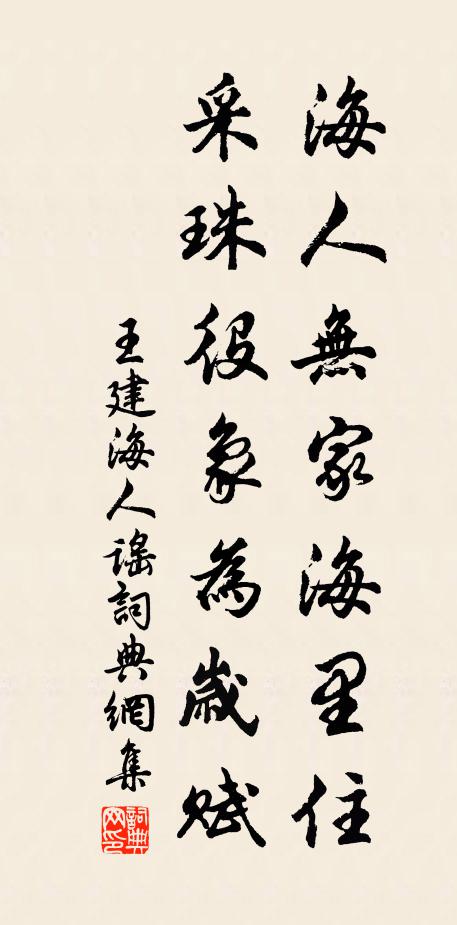 海人無家海里住
采珠役象為歲賦
王建海人謠詞典網集
詞典網印